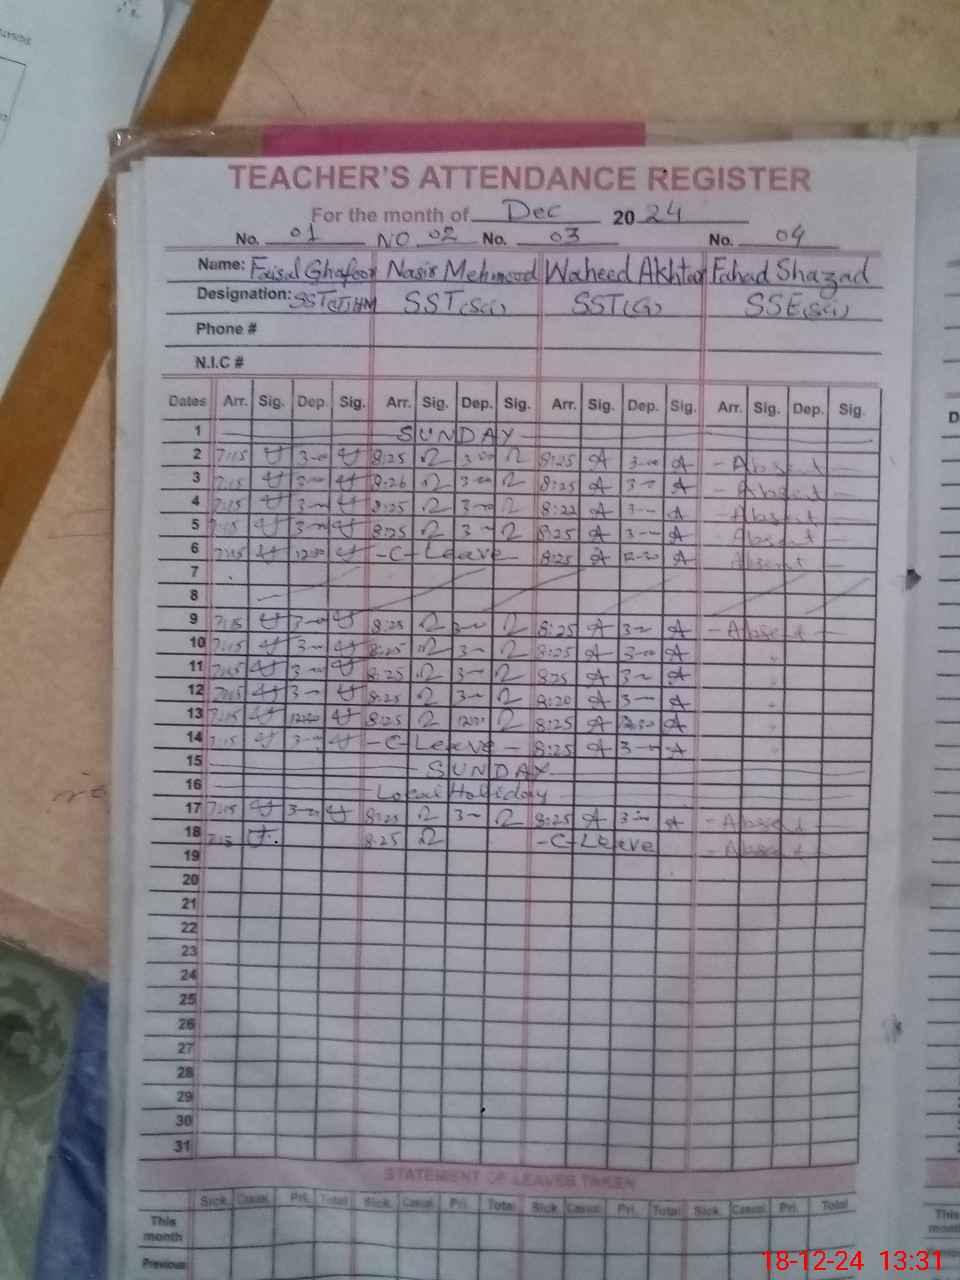 TEACHER'S ATTENDANCE REGISTER
For the month of Dec 20 24
No. 01 NO 02 No. 03 No. 04
Name: Faisal Ghafoor Nasir Mehmood Waheed Akhtar Fahad Shazad
Designation: SST SST(Sci) SST(G) SSE(Sci)
Phone #
N.I.C #
Dates Arr. Sig. Dep. Sig. Arr. Sig. Dep. Sig. Arr. Sig. Dep. Sig. Arr. Sig. Dep. Sig.
1 SUNDAY
2 7:15 3-00 8:25 3-00 8:25 3-00 - Absent -
3 7:15 3-00 8:26 3-00 8:25 3- - Absent -
4 7:15 3-00 8:25 3-00 8:22 3-00 - Absent -
5 7:15 3-00 8:25 3-00 8:25 3-00 Absent -
6 7:15 12:30 - C - Leave - 8:25 12-30 Absent -
7
8
9 7:15 3-00 8:25 3-00 8:25 3-00 - Absent -
10 7:15 3-00 8:25 3- 8:25 3-00
11 7:15 3-00 8:25 3-00 8:25 3-00
12 7:15 3-00 8:25 3-00 8:20 3-00
13 7:15 12:30 8:25 12:30 8:25 12:30
14 7:15 3-00 - C - Leave - 8:25 3-00
15 SUNDAY
16 Local Holiday
17 7:15 3-00 8:25 3-00 8:25 3:00 - Absent -
18 7:15 8:25 - C - Leave - Absent -
19
20
21
22
23
24
25
26
27
28
29
30
31
STATEMENT OF LEAVES TAKEN
Sick. Casual. Pri. Total Sick. Casual. Pri. Total Sick. Casual. Pri. Total Sick. Casual. Pri. Total
This month
Previous
18-12-24 13:31